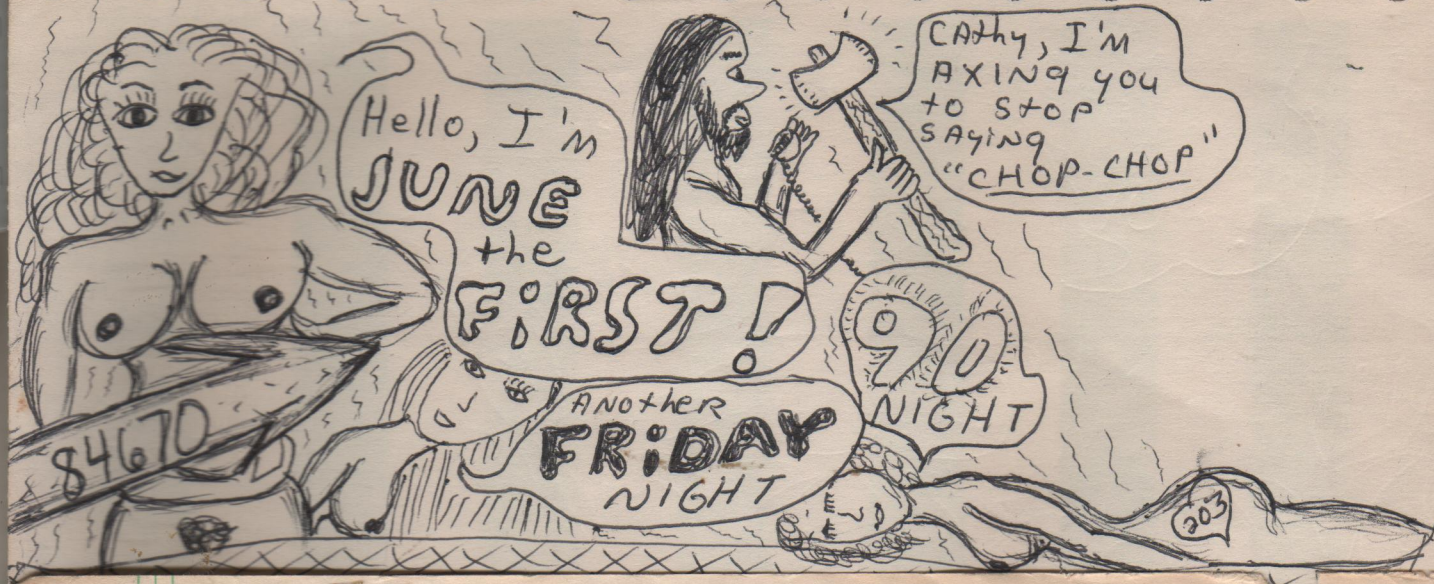 Hello, I'm
JUNE
the
FiRST!
CAthy, I'm
AXING you
to stop
SAying
"CHOP-CHOP"
90
NIGHT
ANOtHER
FRiDAY
NIGHT
84670
203